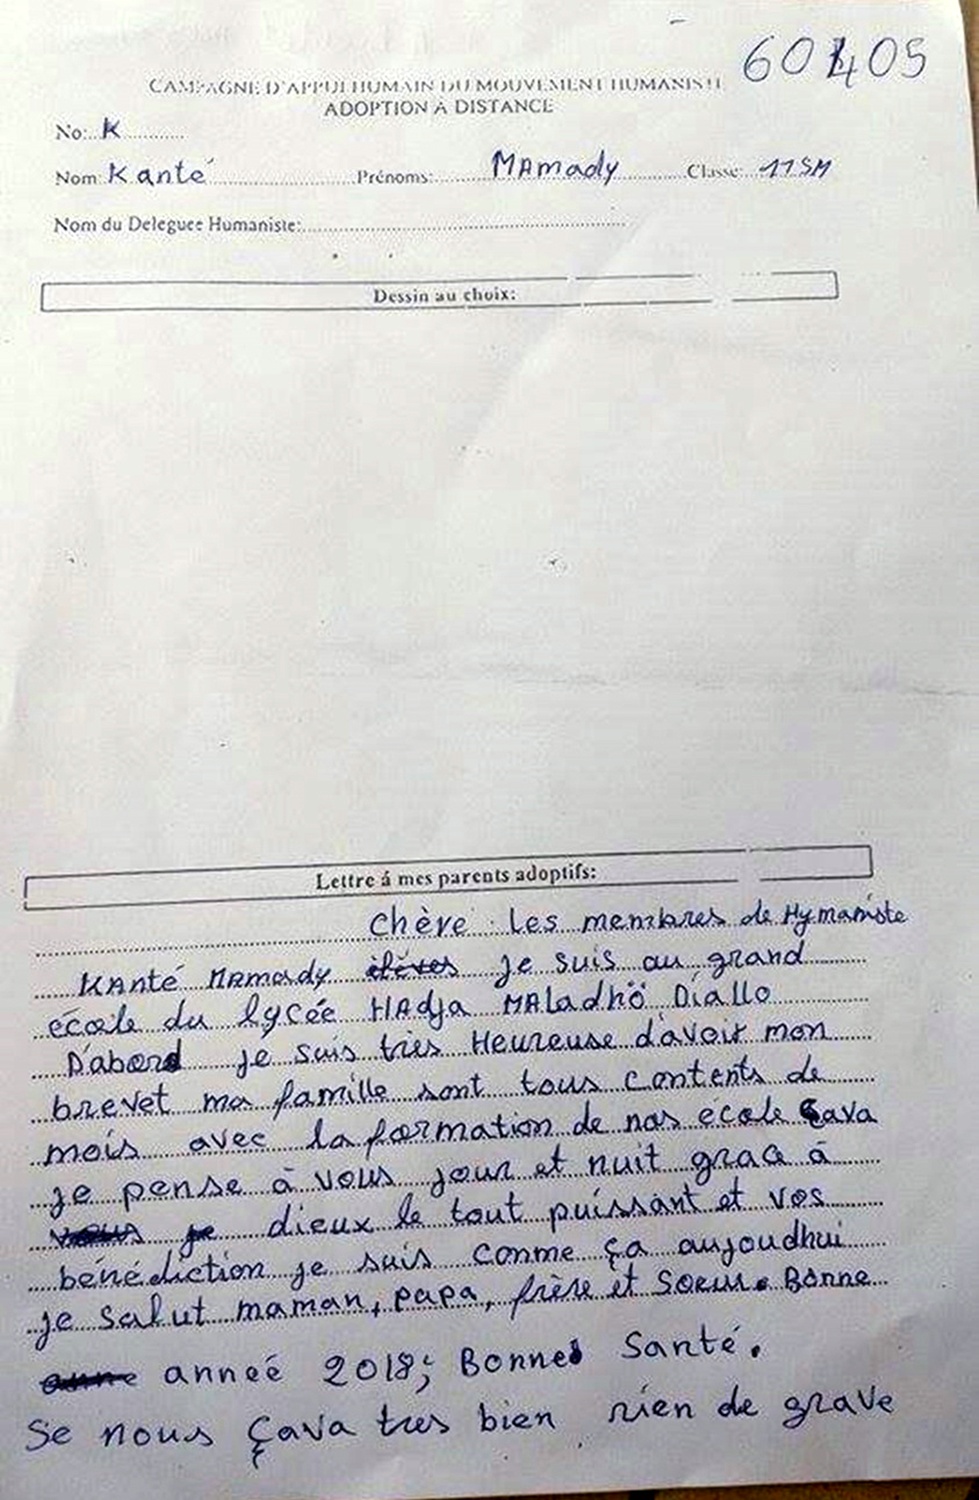 60405
CAMPAGNE D'APPUI HUMAIN DU MOUVEMENT HUMANISTE
ADOPTION A DISTANCE
No:..K............
Nom Kanté ................Prénoms:.......MAmady.........Classe:..11SM
Nom du Deleguee Humaniste:..............................................
Dessin au choix:
Lettre á mes parents adoptifs:
Chère Les membres de Hymaniste
KANté MAmady élèves je suis au grand
école du lycée HAdja MALadhö Diallo
D'abord je suis très Heureuse d'avoir mon
brevet ma famille sont tous contents de
mois avec la formation de nos école Çava
je pense à vous jour et nuit graca à
vous je dieux le tout puissant et vos
bénédiction je suis comme ça aujoudhui
je salut maman, papa, frère et soeur. Bonne
anneé 2018; Bonnes Santé.
Se nous Çava tres bien rien de grave